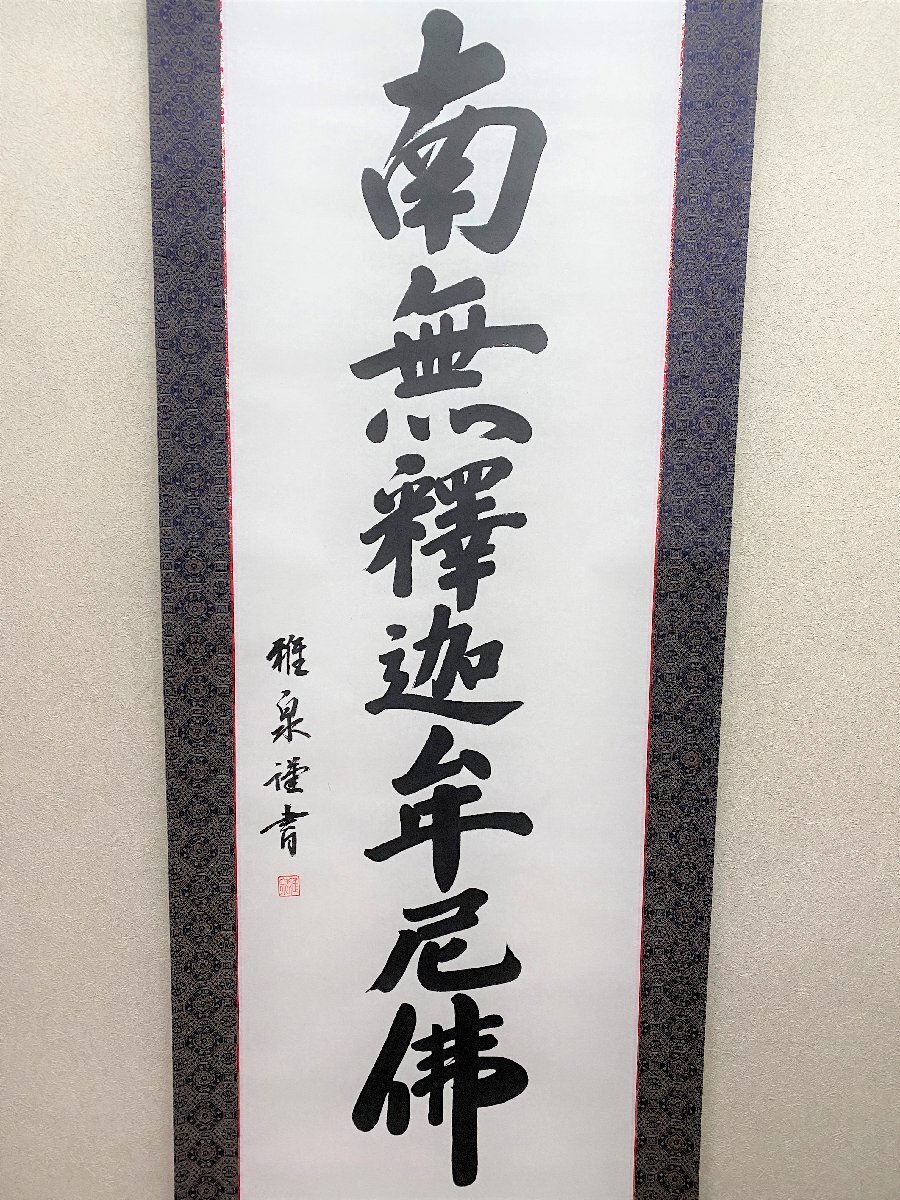 南無釋迦牟尼佛
雅泉謹書